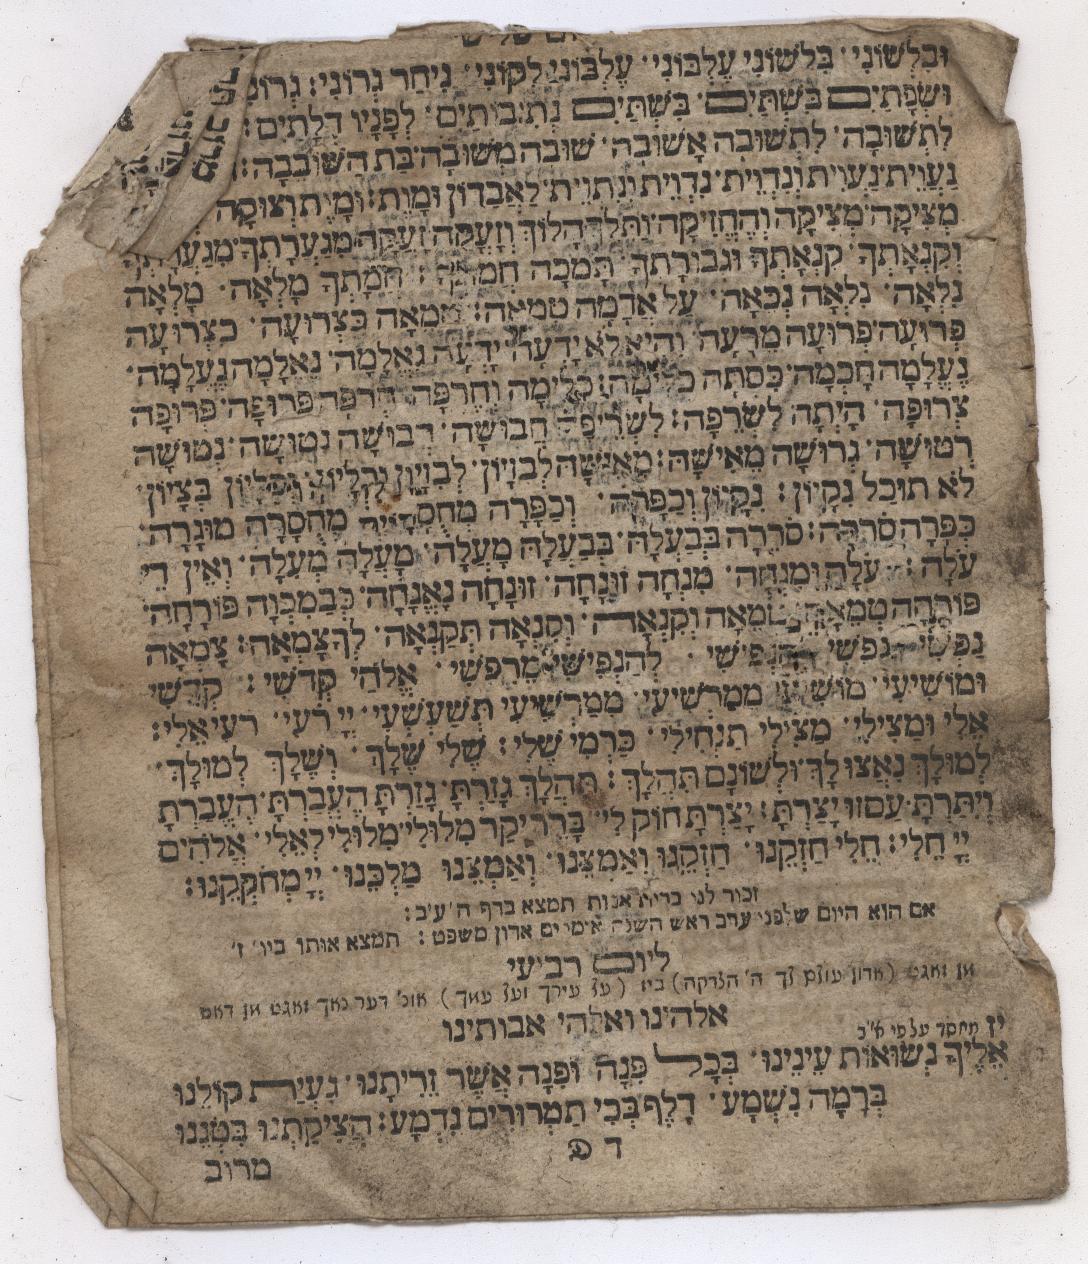 וּבִלְשׁוֹנִי בִּלְשׁוֹנִי עֶלְבּוֹנִי עֶלְבּוֹנִי לְקוֹנִי נִיחַר גְּרוֹנִי׃
וּשְׂפָתַיִם בִּשְׁתַּיִם בִּשְׁתַּיִם נְתִיבוֹתַיִם לְפָנָיו דְּלָתַיִם׃
לִתְשׁוּבָה לִתְשׁוּבָה אָשׁוּבָה שׁוּבָה מְשׁוּבָה בַּת הַשּׁוֹבֵבָה׃
נַעֲוֵית נַעֲוֵית וְנִדְוֵית נִדְוֵית וְנִתְוֵית לַאֲבַדּוֹן וָמָוֶת׃
מְצִיקָה מְצִיקָה וְהֶחֱזִיקָה וַתֵּלֶךְ הָלוֹךְ וְזָעֲקָה זָעֲקָה מִגַּעֲרָתְךָ
וְקִנְאָתְךָ קִנְאָתְךָ וּגְבוּרָתְךָ תָּמְכָה חֲמָתְךָ׃ חֲמָתְךָ מָלְאָה מָלְאָה
נִלְאָה נִלְאָה נִכְאָה עַל אֲדָמָה טְמֵאָה׃ טְמֵאָה כִּצְרוּעָה כִּצְרוּעָה
פְּרוּעָה פְּרוּעָה מֵרָעָה וְהִיא לֹא יָדְעָה יָדְעָה נֶאֱלָמָה נֶאֱלָמָה נֶעֱלָמָה
נֶעֱלָמָה חָכְמָה כִּסְּתָה כְלִימָה׃ כְּלִימָה וְחֶרְפָּה חֶרְפָּה פְּרוּפָה פְּרוּפָה
צְרוּפָה הָיְתָה לִשְׂרֵפָה׃ לִשְׂרֵיפָה חֲבוּשָׁה רְבוּשָׁה נְטוּשָׁה נְטוּשָׁה
רְטוּשָׁה גְּרוּשָׁה מֵאִישָׁהּ׃ מֵאִישָׁהּ לְבִזָּיוֹן לְבִזָּיוֹן וְכִלָּיוֹן וְכִלָּיוֹן בְּצִיּוֹן
לֹא תוּכַל נִקָּיוֹן׃ נִקָּיוֹן וְכַפָּרָה וְכַפָּרָה מְחֻסָּרָה מְחֻסָּרָה מוּגָרָה
כְּפָרָה סֹרְרָה׃ סֹרְרָה בְּבַעְלָהּ בְּבַעְלָהּ מָעֲלָה מָעֲלָה מַעְלָה וְאֵין
עֹלָה׃ עֹלָה וּמִנְחָה מִנְחָה זוּנָּחָה זוּנָּחָה נֶאֱנָחָה כְּבְמִכְוָה פּוֹרָחָה
פּוֹרְחָה טְמֵאָה טְמֵאָה וְקִנְאָה וְקִנְאָה תְּקַנְּאָה לְךָ צָמְאָה׃ צָמְאָה
נַפְשִׁי נַפְשִׁי לְהַנְפִישִׁי מֵרִפְשִׁי אֱלֹהַי קָדְשִׁי׃ קָדְשִׁי
וּמוֹשִׁיעִי מוֹשִׁיעִי מִמַּרְשִׁיעִי מִמַּרְשִׁיעִי תְּשַׁעְשְׁעִי יְיָ רֹעִי רֹעִי אֵלִי׃
אֵלִי וּמַצִּילִי מַצִּילִי תַּנְחִילִי כַּרְמִי שֶׁלִּי׃ שֶׁלִּי שֶׁלָּךְ וְשֶׁלָּךְ לְמוֹלָךְ
לְמוֹלָךְ נֶאֶצוּ לָךְ וּלְשׁוֹנָם תִּהֲלָךְ׃ תִּהֲלָךְ גָּזַרְתָּ גָּזַרְתָּ הֶעֱבַרְתָּ הֶעֱבַרְתָּ
וְיִתַּרְתָּ עַם זוּ יָצַרְתָּ׃ יָצַרְתָּ חוֹק לִי יְקַר מִלּוּלִי מִלּוּלִי לְאֵלִי אֱלֹהִים
יְיָ חֵלִי׃ חֵלִי חַזְּקֵנוּ חַזְּקֵנוּ וְאַמְּצֵנוּ וְאַמְּצֵנוּ מַלְכֵּנוּ יְיָ מְחֹקְקֵנוּ׃
זכור לנו ברית אבות תמצא ברף ה׳ ע״ב׃
אם הוא היום שלפני ערב ראש השנה אימים אדון משפט׃ תמצא אותו ביו׳ ז׳
ליום רביעי
מן זאגט (אדון עולם לך ה׳ הצדקה) ביז (עד עירך ועד עמך) אונ׳ דער נאך זאגט מן דאש
אלהינו ואלהי אבותינו
אֵלֶיךָ נְשׂוּאוֹת עֵינֵינוּ בְּכָל פִּנָּה וּפִנָּה אֲשֶׁר זֵרִיתָנוּ גְּעִיַּת קוֹלֵנוּ
בְּרָמָה נִשְׁמַע דֶּלֶף בְּכִי תַמְרוּרִים נִדְמָע׃ הֲצִיקַתְנוּ בִּטְנֵנוּ
ד פ
מרוב